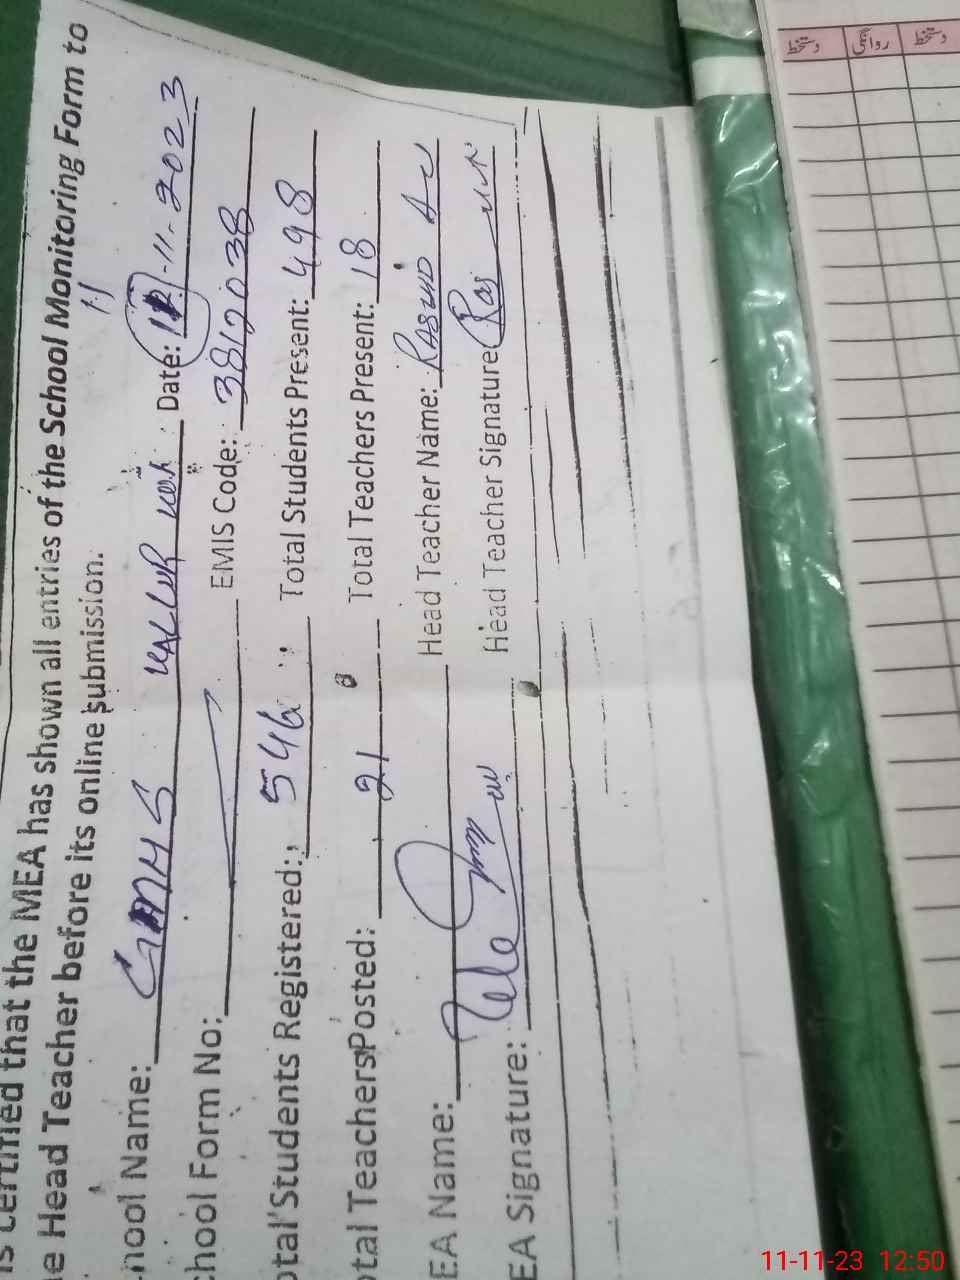 is certified that the MEA has shown all entries of the School Monitoring Form to
e Head Teacher before its online submission.
hool Name: GMHS Date: 11-11-2023
11
chool Form No: EMIS Code: 3812038
otal Students Registered: 546 Total Students Present: 498
otal Teachers Posted: 21 Total Teachers Present: 18
EA Name: Head Teacher Name:
EA Signature: Head Teacher Signature
دستخط روانگی دستخط
11-11-23 12:50